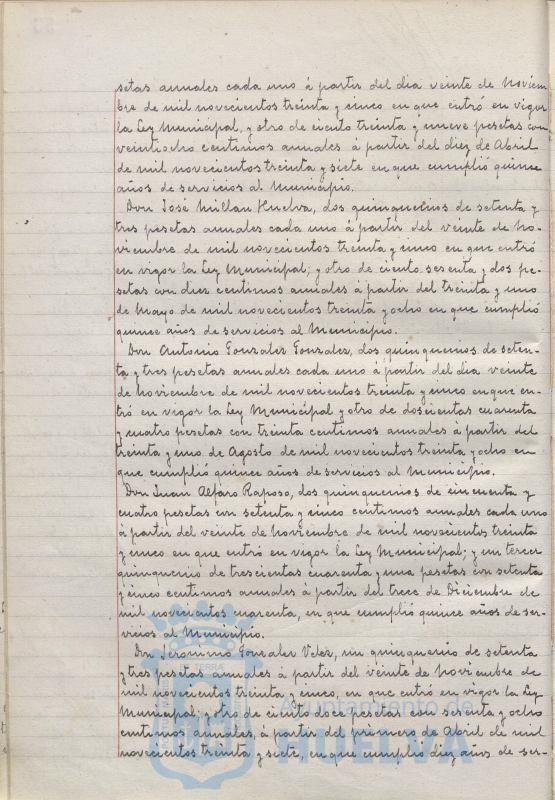 setas anuales cada uno á partir del dia veinte de Noviem
bre de mil novecientos treinta y cinco en que entró en vigor
la Ley Municipal, y otro de ciento treinta y nueve pesetas con
veintiocho centimos anuales á partir del diez de Abril
de mil novecientos treinta y siete en que cumplió quince
años de servicios al Municipio.
Don José Millan Huelva, dos quinquenios de setenta y
tres pesetas anuales cada uno á partir del veinte de no-
viembre de mil novecientos treinta y cinco en que entró
en vigor la Ley Municipal; y otro de ciento sesenta y dos pe-
setas con diez centimos anuales á partir del treinta y uno
de Mayo de mil novecientos treinta y ocho en que cumplió
quince años de servicios al Municipio.
Don Antonio Gonzalez Gonzalez, dos quinquenios de seten-
ta y tres pesetas anuales cada uno á partir del dia veinte
de Noviembre de mil novecientos treinta y cinco en que en-
tró en vigor la Ley Municipal y otro de doscientas cuarenta
y cuatro pesetas con treinta centimos anuales á partir del
treinta y uno de Agosto de mil novecientos treinta y ocho en
que cumplió quince años de servicios al Municipio.
Don Juan Alfaro Raposo, dos quinquenios de cincuenta y
cuatro pesetas con setenta y cinco centimos anuales cada uno
á partir del veinte de Noviembre de mil novecientos treinta
y cinco en que entró en vigor la Ley Municipal; y un tercer
quinquenio de trescientas cuarenta y una pesetas con setenta
y cinco centimos anuales á partir del trece de Diciembre de
mil novecientos cuarenta, en que cumplió quince años de ser-
vicios al Municipio.
Don Jeronimo Gonzalez Velez, un quinquenio de setenta
y tres pesetas anuales á partir del veinte de Noviembre de
mil novecientos treinta y cinco, en que entró en vigor la Ley
Municipal, y otro de ciento doce pesetas con sesenta y ocho
centimos anuales, á partir del primero de Abril de mil
novecientos treinta y siete, en que cumplio diez años de ser-
Ayuntamiento de
HUELVA